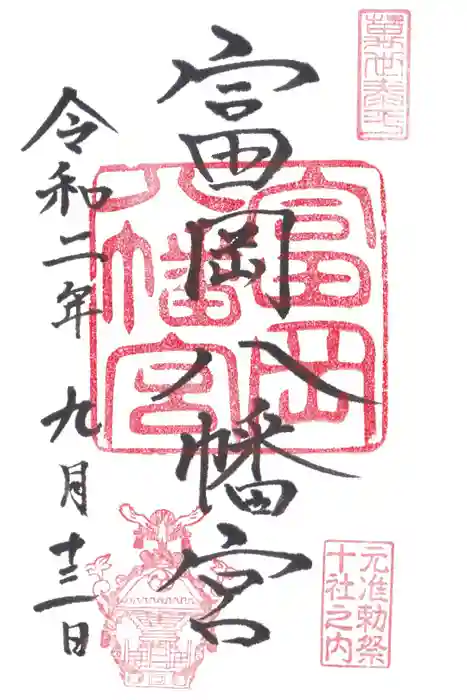 萬世泰平
富岡八幡宮
富岡八幡宮
元准勅祭
十社之内
令和二年 九月十三日